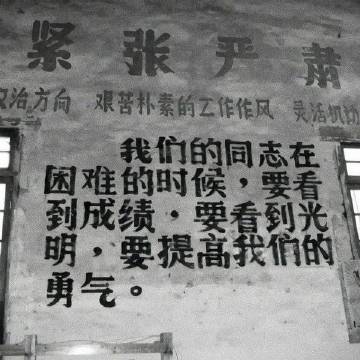 紧张严肃
政治方向 艰苦朴素的工作作风 灵活机动
我们的同志在
困难的时候，要看
到成绩，要看到光
明，要提高我们的
勇气。